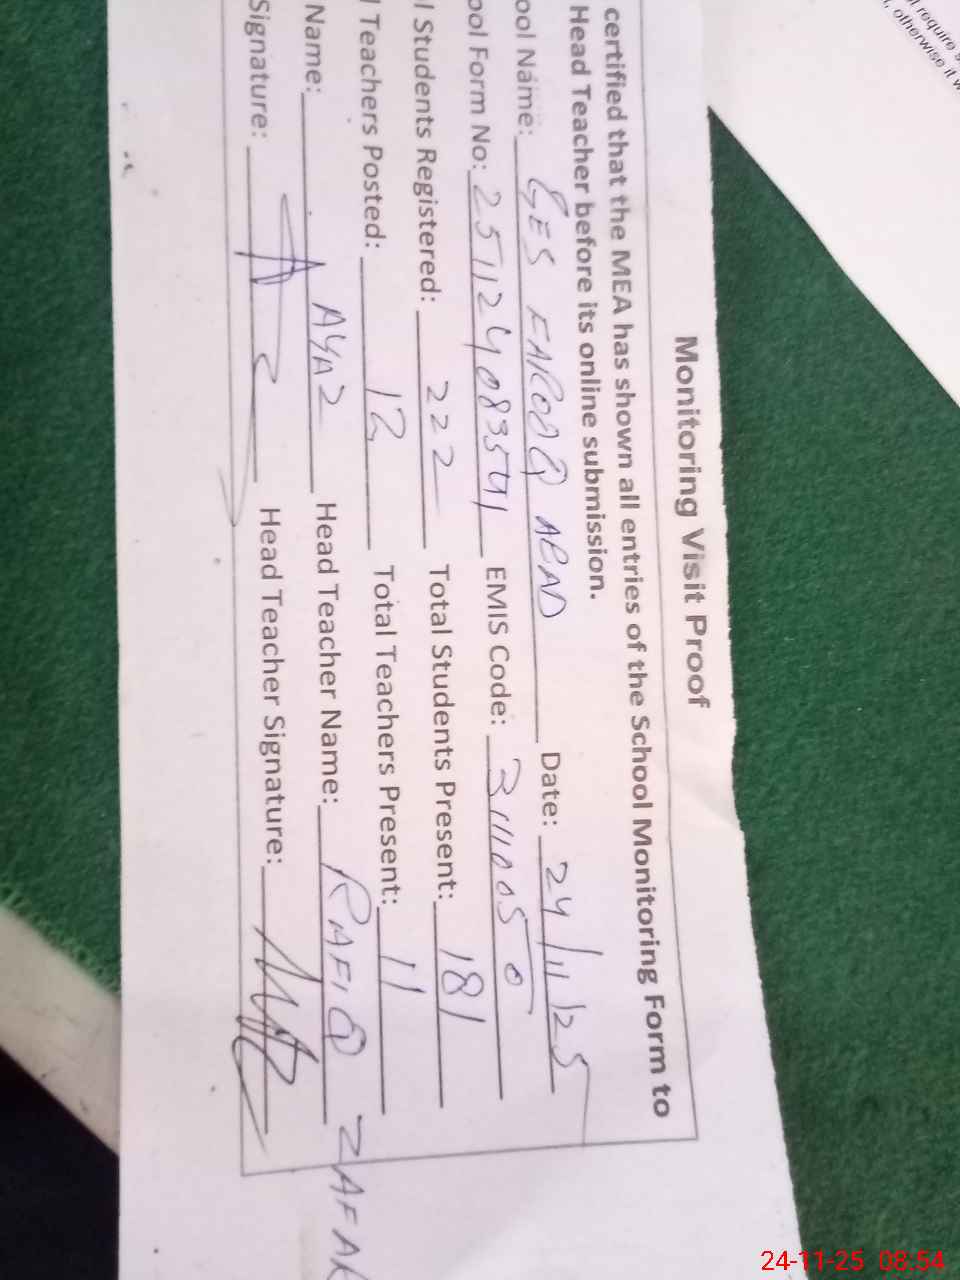 l require s
, otherwise it w
Monitoring Visit Proof
certified that the MEA has shown all entries of the School Monitoring Form to
Head Teacher before its online submission.
ool Name: GES FAROOQ ABAD Date: 24/11/25
ool Form No: EMIS Code:
l Students Registered: 222 Total Students Present: 181
l Teachers Posted: 12 Total Teachers Present: 11
Name: AYAZ Head Teacher Name: RAFIQ ZAFAR
Signature: Head Teacher Signature:
24-11-25 08:54